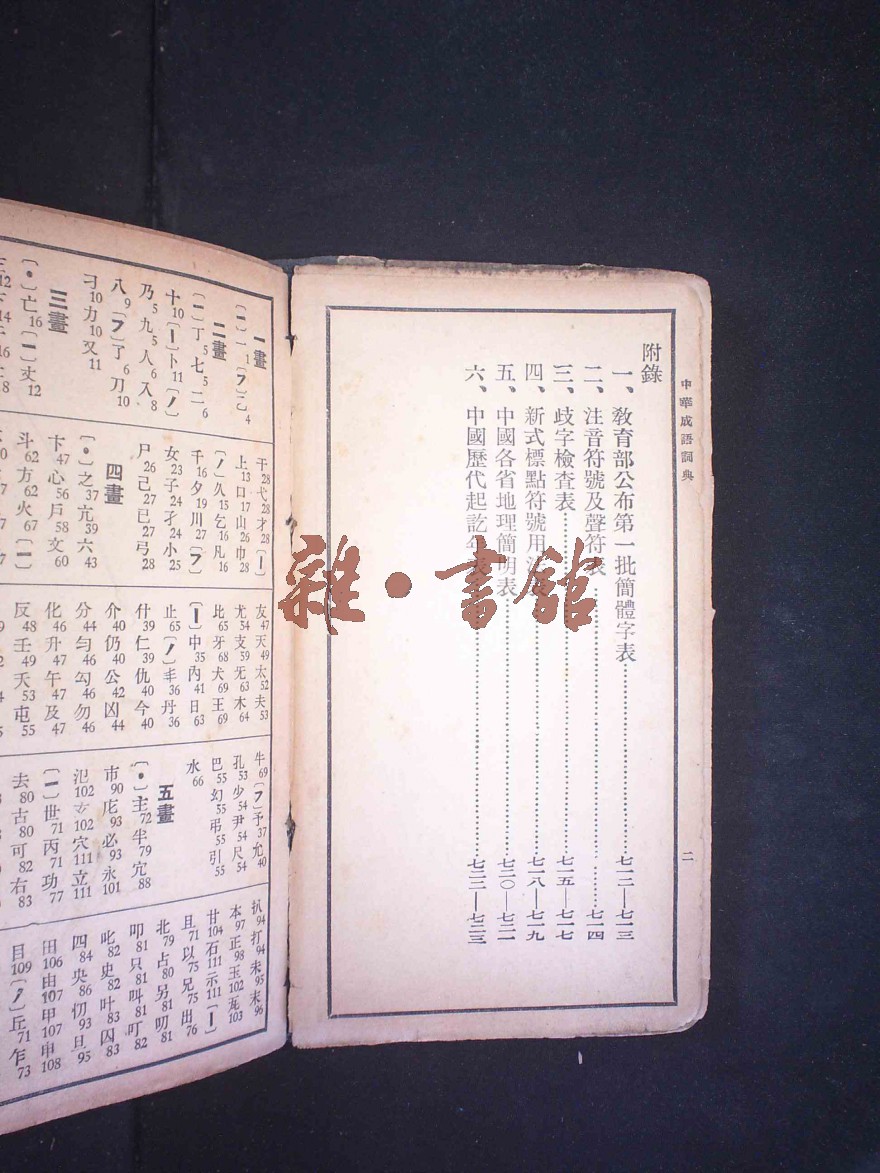 中華成語詞典
附錄
一、教育部公布第一批簡體字表……七一二—七一三
二、注音符號及聲符表……七一四
三、歧字檢查表……七一五—七一七
四、新式標點符號用法表……七一八—七一九
五、中國各省地理簡明表……七二〇—七二一
六、中國歷代起訖年表……七二二—七二三
二
雜·書館
一畫
〔一〕一1〔フ〕乙4
二畫
〔一〕丁5七5二6
十10〔丨〕卜11〔丿〕
乃5九5人6入8
八9〔フ〕了6刀10
刁10力10又11
三畫
〔•〕亡16〔一〕丈12
干28弋28才28〔丨〕
上13口17山26巾28
〔丿〕久15乞16凡16
千16夕19川27〔フ〕
女23子24孑24小25
尸26己27已27弓28
四畫
〔•〕之37亢39六43
卞47心56戶58文60
斗62方62火67〔一〕
友47天49太52夫53
尤54支59无63木64
比65牙68犬69王69
〔丨〕中35內41日63
止65〔丿〕丰36丹36
什39仁39仇40今40
介40仍40公42凶44
分44勻46勾46勿46
化46升47午47及47
反48壬49夭53屯55
牛69〔フ〕予37允40
孔53少54尹54尺54
巴55幻55弔55引55
水66
五畫
〔•〕主72半79宂88
市90庀93必93永101
氾102玄102穴111立111
〔一〕世71丙71功77
去80古80可82右83
扒94打94未95末96
本97正98玉102瓦103
甘104石111示111〔丨〕
且71以75兄75出76
北79占80另81叨81
叩81只81叫81叮82
叱82史82叶83囚83
四84央86忉93旦95
田106由107甲107申108
目109〔丿〕丘71乍73